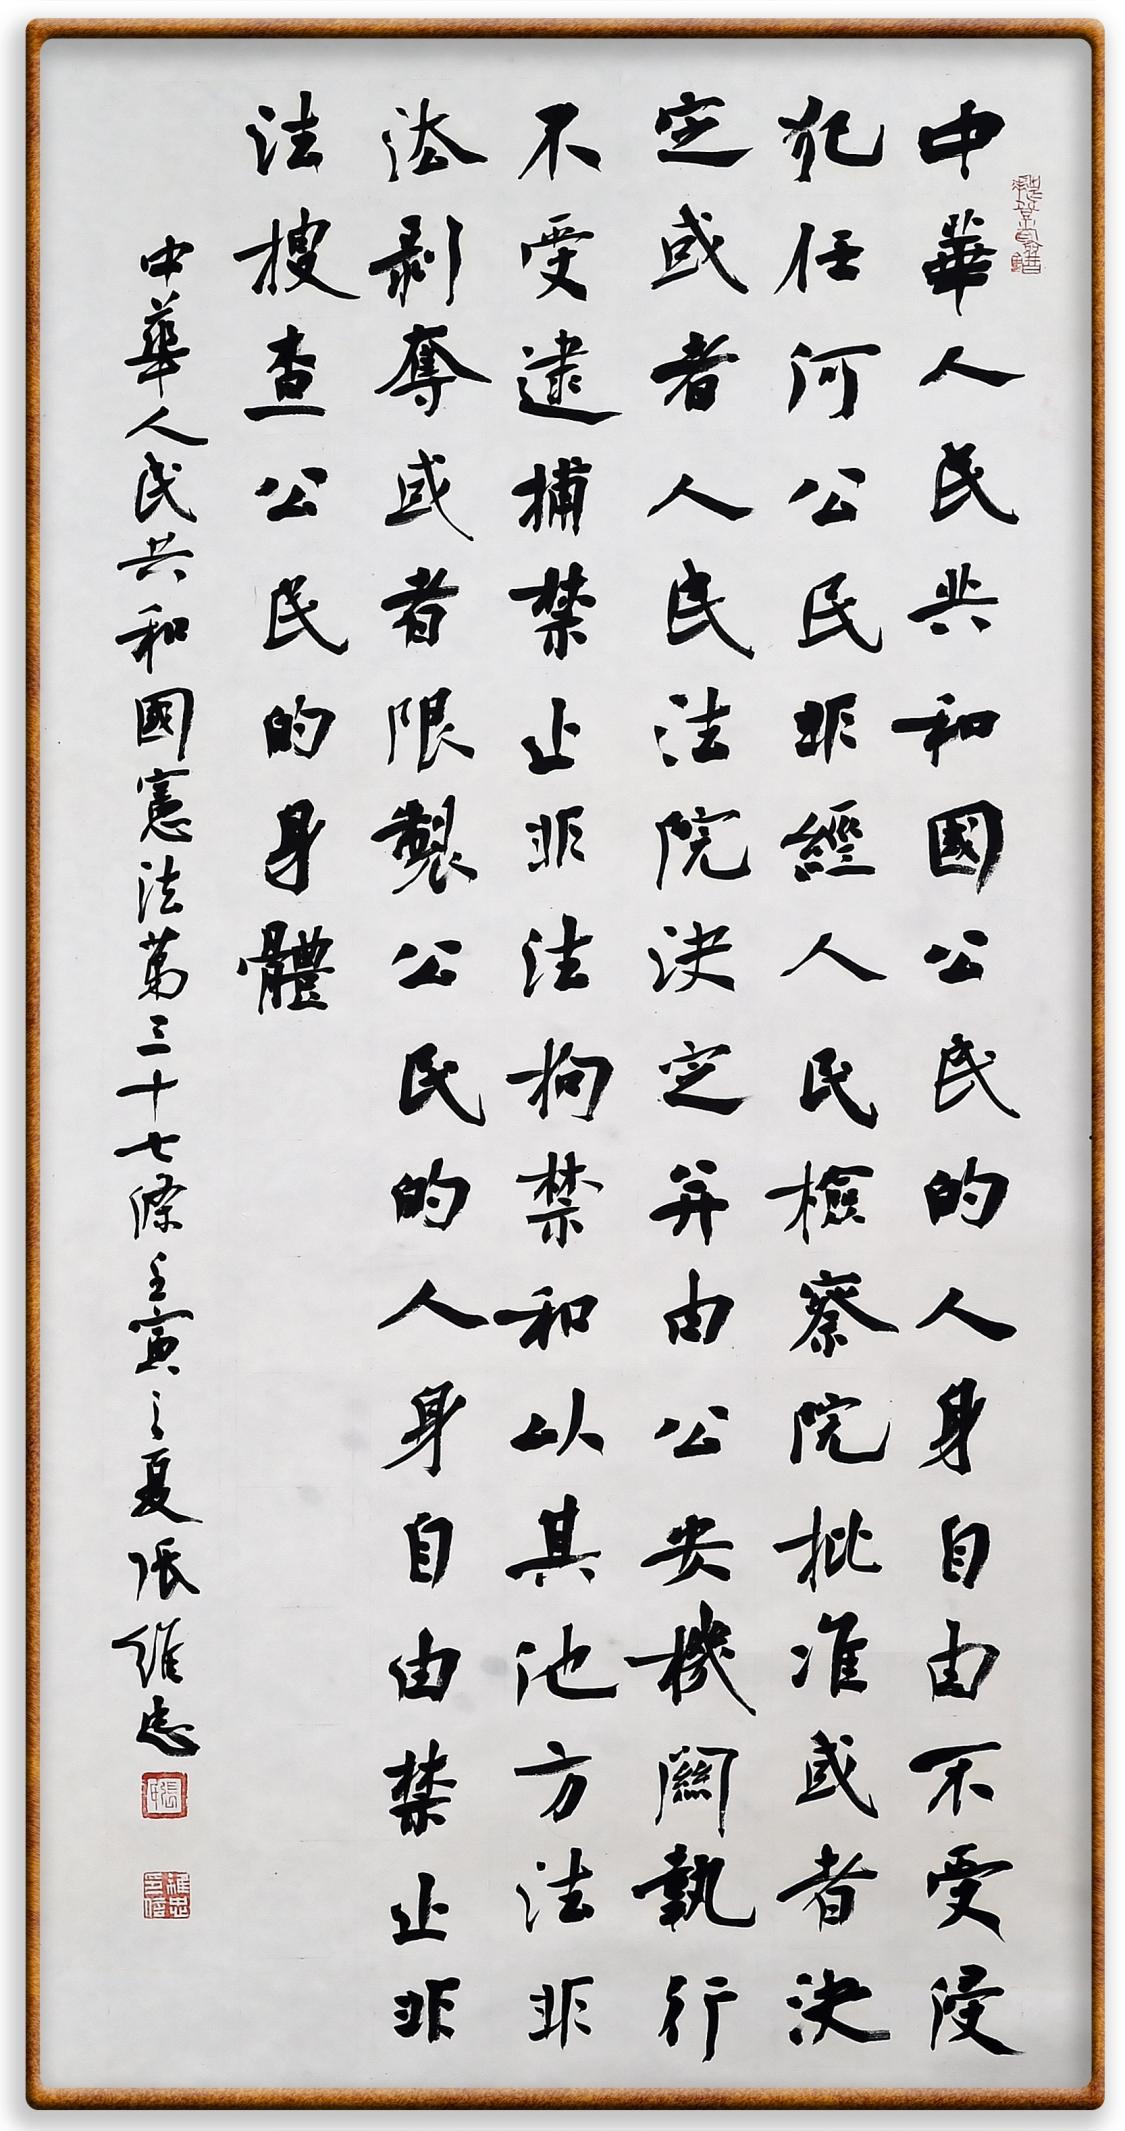 中華人民共和國公民的人身自由不受浸
犯任何公民非經人民檢察院批准或者決
定或者人民法院決定并由公安機關執行
不受逮捕禁止非法拘禁和以其他方法非
法剥奪或者限製公民的人身自由禁止非
法搜查公民的身體
中華人民共和國憲法第三十七條壬寅之夏張維忠
維忠印信